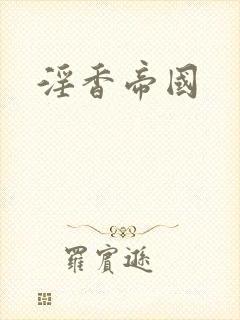 淫香帝國
羅賓遜